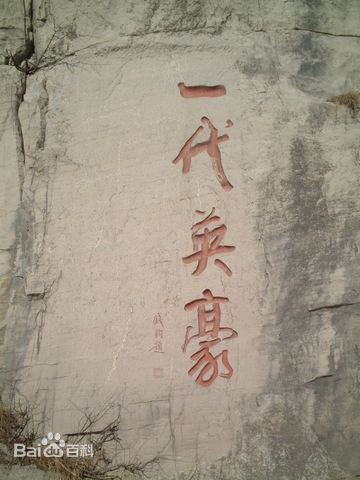 一代英豪
Bai百科